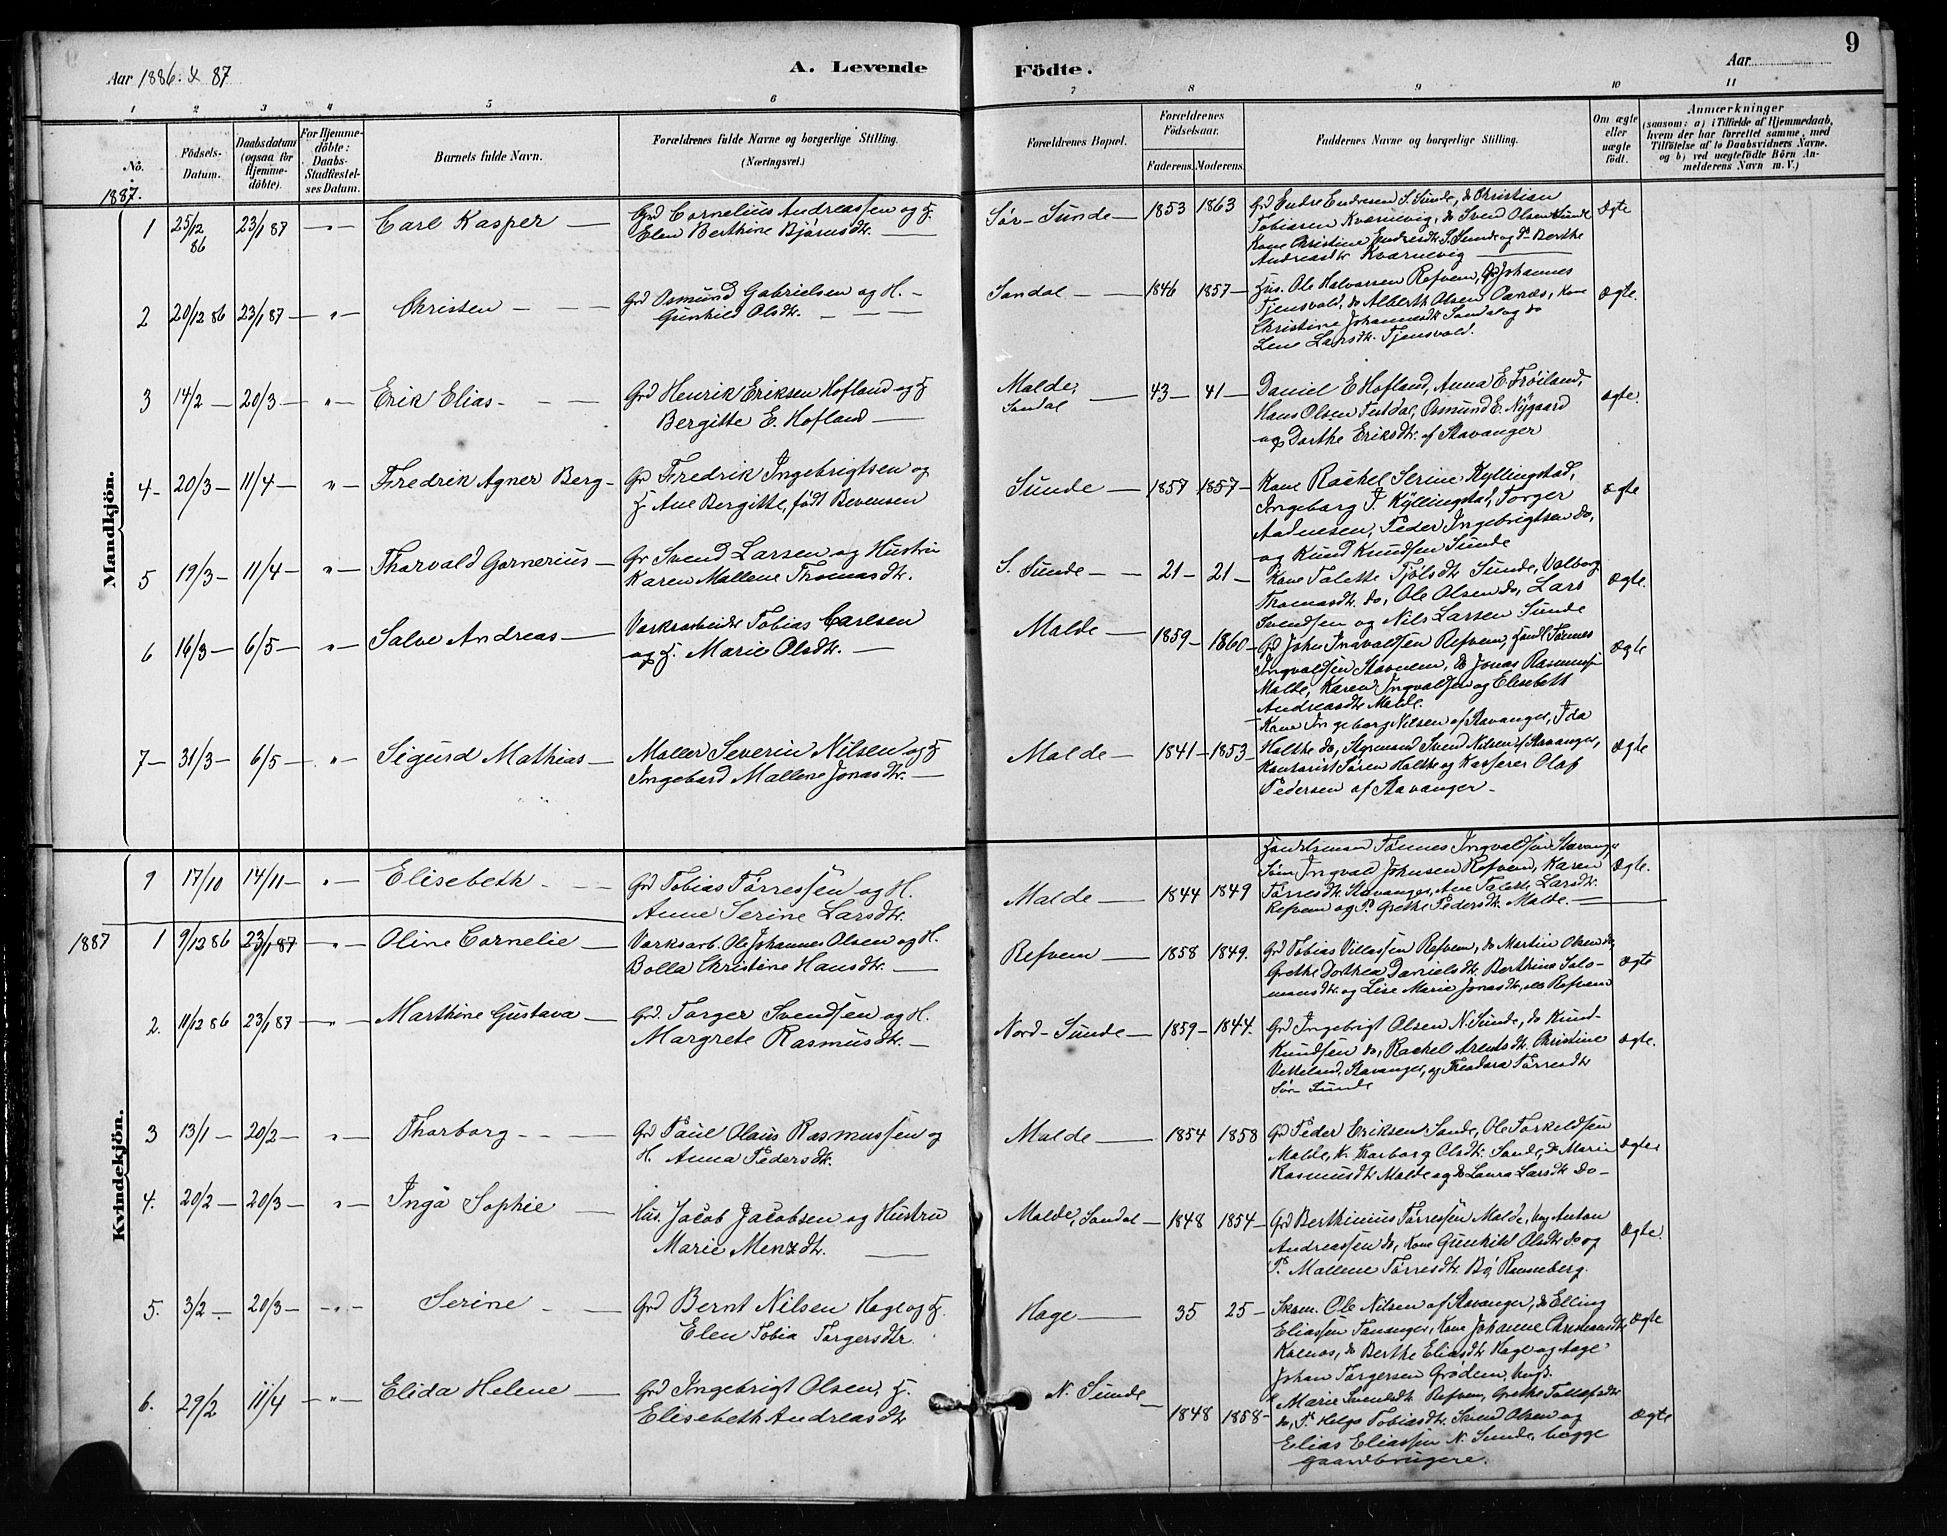 Aar 1886 & 87
A. Levende
Födte.
Aar
9
1 2 3 4 5 6 7 8 9 10 11
No.
Födsels-
Datum.
Daabsdatum
(ogsaa for
Hjemme-
döbte).
For Hjemme-
döbte:
Daabs-
Stadfæstel-
ses Datum.
Barnets fulde Navn.
Forældrenes fulde Navne og borgerlige Stilling.
(Næringsvei.)
Forældrenes Bopæl.
Forældrenes
Födselsaar.
Faderens. Moderens.
Faddernes Navne og borgerlige Stilling.
Om ægte
eller
uægte
födt.
Anmærkninger
(saasom: a) i Tilfælde af Hjemmedaab,
hvem der har forrettet samme, med
Tilföielse af to Daabsvidners Navne,
og b) ved uægtefödte Börn An-
melderens Navn m. V.)
1887.
Mandkjön.
1 25/12 86 23/1 87 Carl Kasper
Grd Cornelius Andreassen og H.
Elen Berthine Bjørnsdtr.
Sør-Sunde 1853 1863
Grd Endre Endresen S. Sunde, do Christian
Tobiasen Kvernevig, do Svend Olsen Sunde
Kone Christine Endresdtr. S. Sunde og P. Berthe
Andreasdtr Kvernevig
Ægte
2 20/12 86 23/1 87 " Christen
Grd Osmund Gabrielsen og H.
Gunhild Olsdtr.
Sandal 1846 1857
Hus. Ole Halvorsen Refvem, Grd Johannes
Tjensvold, do Albert Olsen Oanæs, Kone
Christine Johannesdtr. Sandal og do
Lene Larsdtr. Tjensvold.
Ægte.
3 14/2 20/3 " Erik Elias
Grd Henrik Eriksen Hofland og H
Bergitte E. Hofland
Malde,
Sandal
43 41
Daniel E Hofland, Anna E. Frøiland,
Hans Olsen Tutdal, Osmund E. Nygaard
og Dorthe Eriksdtr. af Stavanger
Ægte.
4 20/3 11/4 " Fredrik Agner Berg
Gr Fredrik Ingebrigtsen og
H. Ane Bergitte, født Bevensen
Sunde 1857 1857
Kone Rachel Serine Kyllingstad,
Ingeborg T. Kyllingstad, Torger
Aadnesen, Peder Ingebrigtsen do,
og Knud Knudsen Sunde
Ægte
5 19/3 11/4 " Thorvald Gornerius
Gr Svend Larsen og Hustru
Karen Mallene Thomasdtr.
S. Sunde 21 21
Kone Talette Tjølsdtr Sunde, Valborg
Thomasdtr. do, Ole Olsen do, Lars
Svendsen og Nils Larsen Sunde
Ægte.
6 16/3 6/5 " Salve Andreas
Værksarbeider Tobias Carlsen
og H. Marie Olsdtr.
Malde 1859 1860
Grd John Ingvaldsen Refvem, Handl Tønnes
Ingvaldsen Stavnem, do Jonas Rasmussen
Malde, Karen Ingvaldsen og Elisebeth
Andreasdtr Malde.
Ægte
7 31/3 6/5 " Sigurd Mathias
Møller Severin Nilsen og H
Ingebord Mallene Jonasdtr.
Malde 1841 1853
Kone Ingeborg Nilsen af Stavanger, Ida
Halthe do, Styrmand Svend Nilsen af Stavanger,
Kontorist Søren Halthe og Kasserer Olaf
Pedersen af Stavanger
Ægte
Kvindekjön.
9 17/10 14/11 " Elisebeth
Grd Tobias Tørressen og H.
Anne Serine Larsdtr.
Malde 1844 1849
Handelsmand Tønnes Ingvaldsen Stavanger
Søm Ingvald Johnsen Refvem, Karen
Tørresdtr. Stavanger, Ane Talette Larsdtr.
Refvem og P. Grethe Pedersdtr. Malde.
Ægte.
1887 1 9/12 86 23/1 87 " Oline Cornelie
Værksarb. Ole Johannes Olsen og H.
Bolla Christine Hansdtr.
Refvem 1858 1849.
Grd Tobias Villassen Refvem, do Martin Olsen do,
Grethe Dorthea Danielsdtr. Berthine Salo-
monsdtr. og Lise Marie Jonasdtr, alle Refvem
Ægte
2. 11/12 86 23/1 87 " Marthine Gustava
Grd. Torger Svendsen og H.
Margrete Rasmusdtr.
Nord-Sunde 1859 1844.
Grd Ingebrigt Olsen N. Sunde, do Knud
Knudsen do, Rachel Arentsdtr. Christine
Vetteland, Stavanger, og Theodora Tørresdtr
Sør Sunde
Ægte.
3 13/1 20/2 " Thorborg
Grd Paul Olaus Rasmussen og
H. Anna Pedersdtr.
Malde 1854 1858
Grd Peder Eriksen Sande, Ole Torkeldsen
Malde, K. Thorborg Olsdtr. Sande, do Marie
Rasmusdtr Malde og do Laura Larsdtr do
Ægte
4. 20/2 20/3 " Inga Sophie
Hus. Jacob Jacobsen og Hustru
Marie Menzdtr.
Malde, Sandal 1848 1854
Grd Berthinius Tørressen Malde, Ung Anton
Andreassen do, Kone Gunhild Olsdtr do og
P. Mallene Tørresdtr. Bø, Randeberg.
Ægte.
5. 3/2 20/3 " Serine
Grd Bernt Nilsen Hage og H.
Elen Tobia Torgersdtr.
Hage 35 25
Skom. Ole Nilsen af Stavanger, do Elling
Eliassen Tananger, Kone Johanne Christiansdtr
Kolnes, do Berthe Eliasdtr Hage og Aage
Johan Torgersen Grødem, Ungk.
Ægte
6. 29/2 11/4 " Elida Helene
Grd Ingebrigt Olsen, H.
Elisebeth Andreasdtr
N. Sunde 1848 1858
K Marie Svendsdtr Refvem, Grethe Tollefsdtr
do, P. Helga Tobiasdtr. Svend Olsen og
Elias Eliassen N. Sunde, begge
gaardbrugere.
Ægte